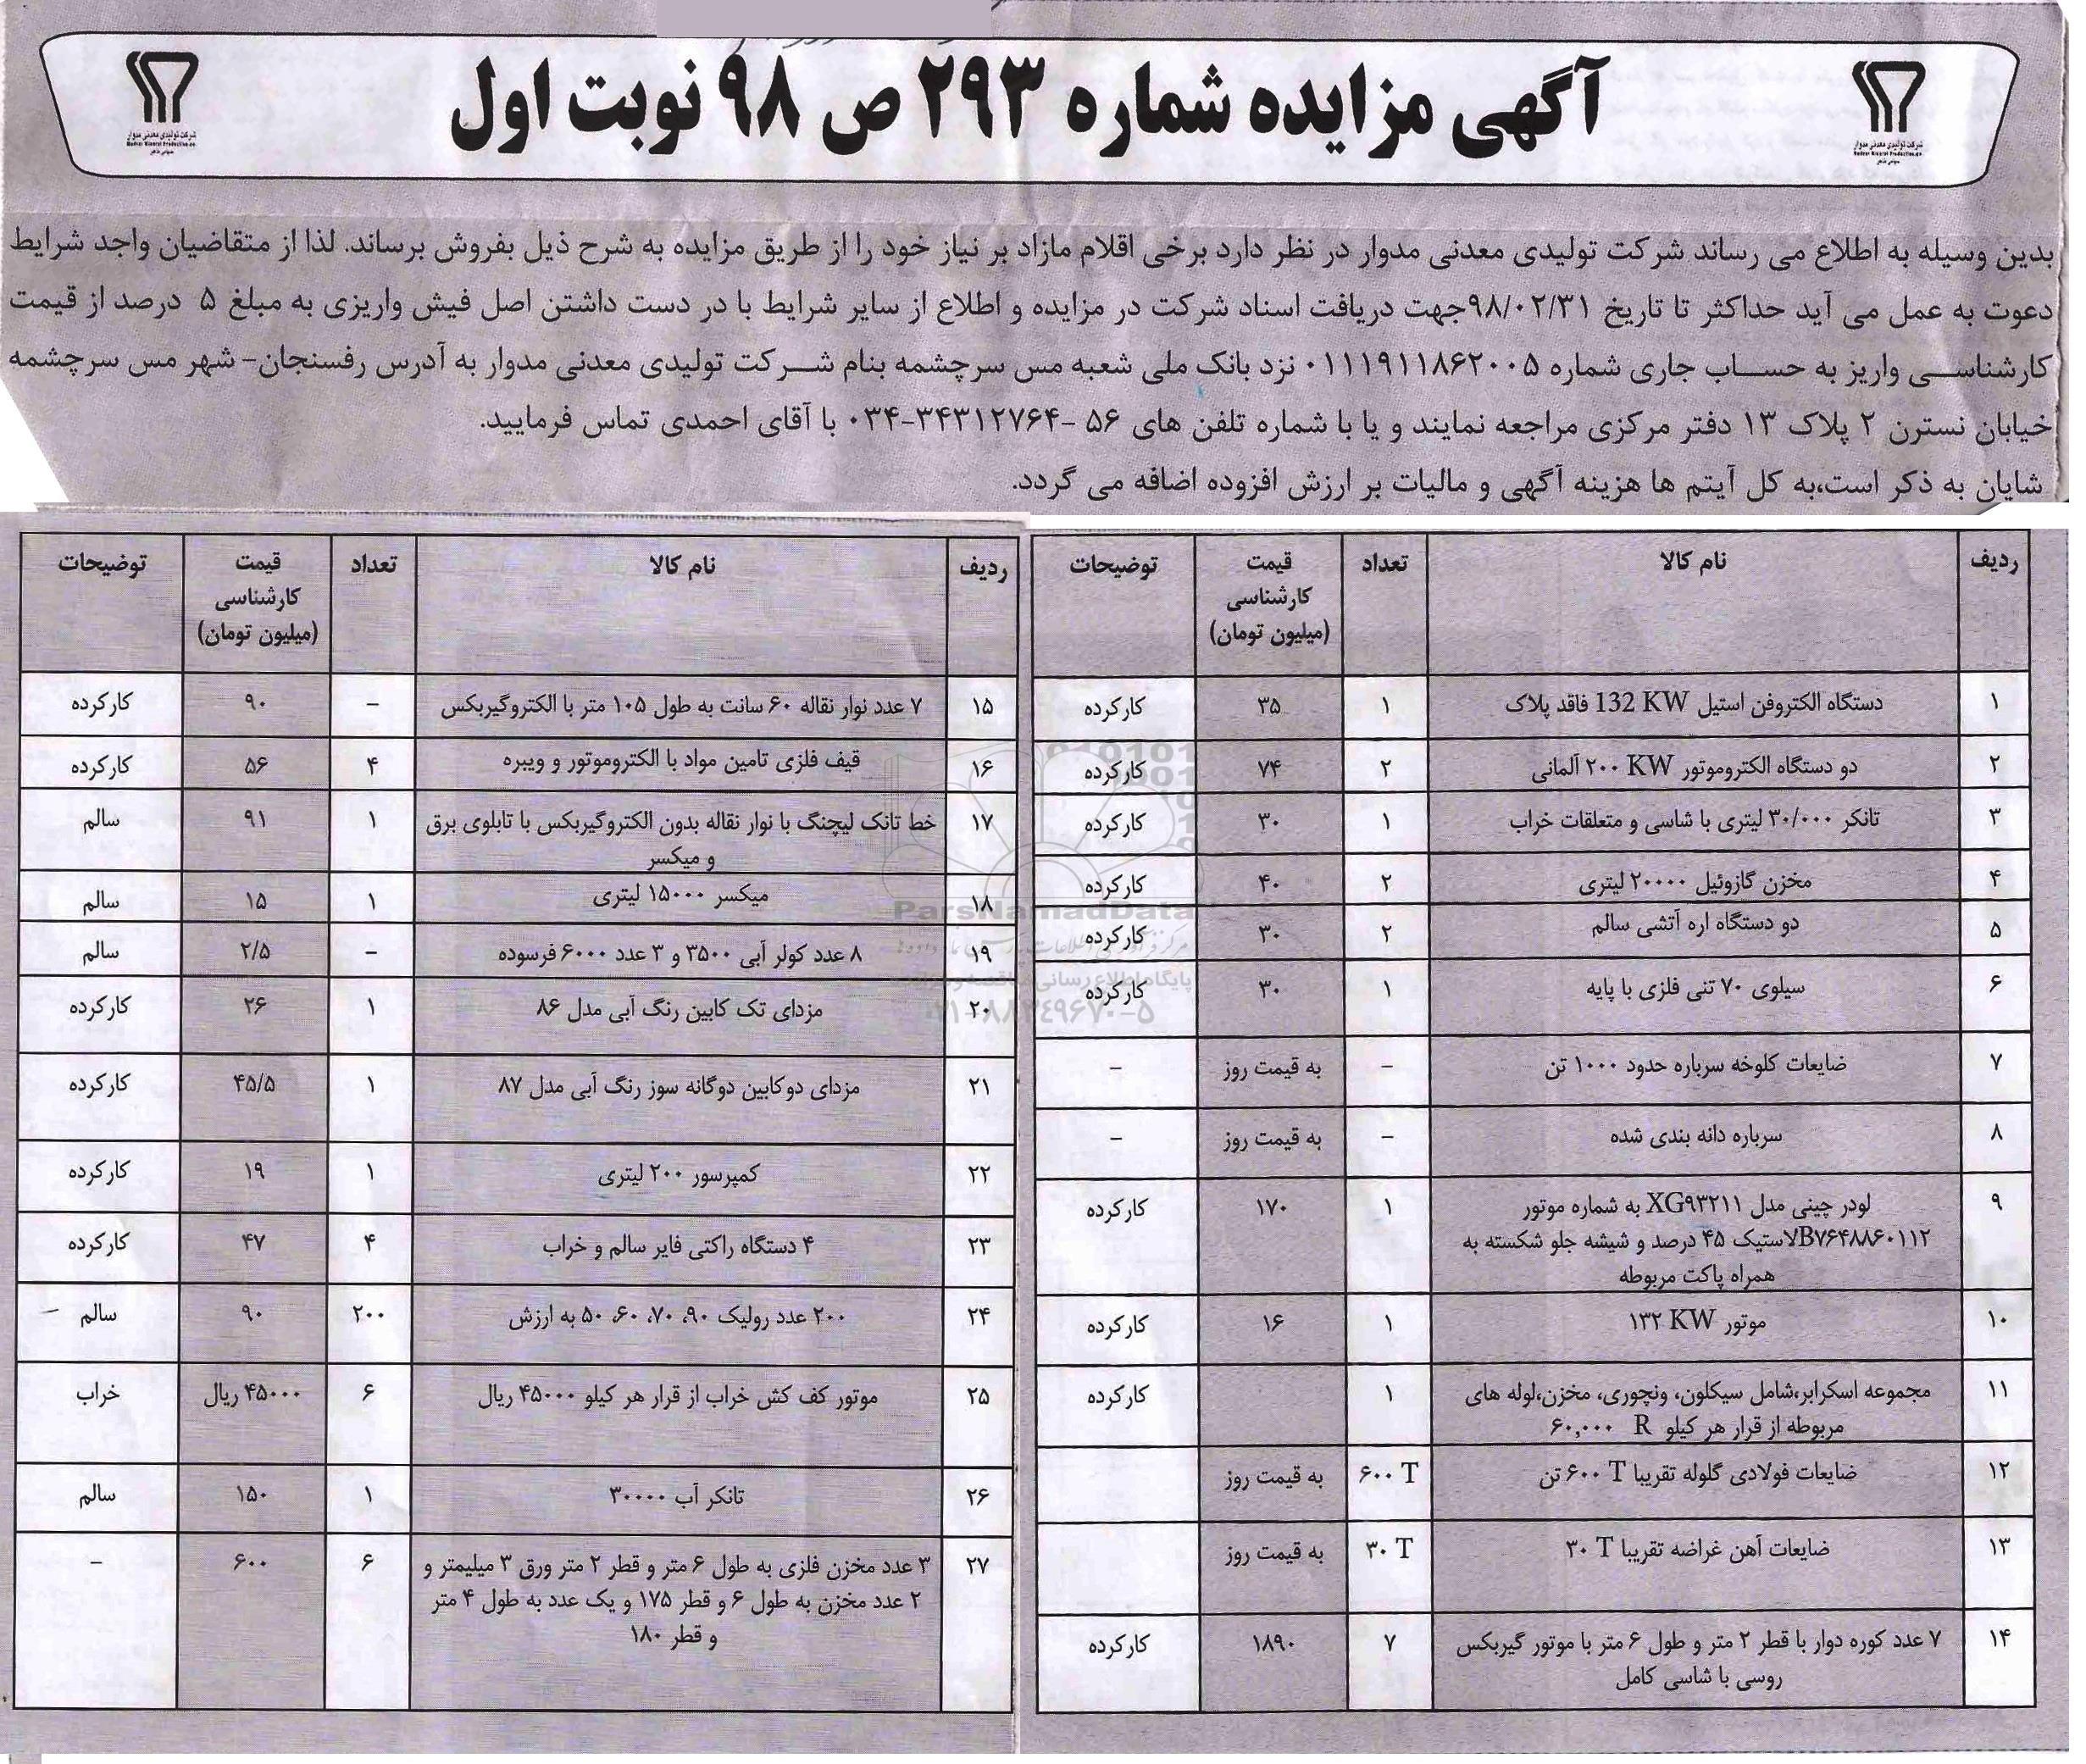 آگهی مزایده شماره ۲۹۳ ص ۹۸ نوبت اول
شرکت تولیدی معدنی مدوار
سهامی خاص
شرکت تولیدی معدنی مدوار
سهامی خاص
بدین وسیله به اطلاع می رساند شرکت تولیدی معدنی مدوار در نظر دارد برخی اقلام مازاد بر نیاز خود را از طریق مزایده به شرح ذیل بفروش برساند. لذا از متقاضیان واجد شرایط
دعوت به عمل می آید حداکثر تا تاریخ ۹۸/۰۲/۳۱جهت دریافت اسناد شرکت در مزایده و اطلاع از سایر شرایط با در دست داشتن اصل فیش واریزی به مبلغ ۵ درصد از قیمت
کارشناسی واریز به حساب جاری شماره ۰۱۱۱۹۱۱۸۶۲۰۰۵ نزد بانک ملی شعبه مس سرچشمه بنام شرکت تولیدی معدنی مدوار به آدرس رفسنجان- شهر مس سرچشمه
خیابان نسترن ۲ پلاک ۱۳ دفتر مرکزی مراجعه نمایند و یا با شماره تلفن های ۵۶ -۰۳۴-۳۴۳۱۲۷۶۴ با آقای احمدی تماس فرمایید.
شایان به ذکر است،به کل آیتم ها هزینه آگهی و مالیات بر ارزش افزوده اضافه می گردد.
ردیف نام کالا تعداد قیمت کارشناسی (میلیون تومان) توضیحات
۱ دستگاه الکتروفن استیل 132 KW فاقد پلاک ۱ ۳۵ کارکرده
۲ دو دستگاه الکتروموتور ۲۰۰ KW آلمانی ۲ ۷۴ کارکرده
۳ تانکر ۳۰/۰۰۰ لیتری با شاسی و متعلقات خراب ۱ ۳۰ کارکرده
۴ مخزن گازوئیل ۲۰۰۰۰ لیتری ۲ ۴۰ کارکرده
۵ دو دستگاه اره آتشی سالم ۲ ۳۰ کارکرده
۶ سیلوی ۷۰ تنی فلزی با پایه ۱ ۳۰ کارکرده
۷ ضایعات کلوخه سرباره حدود ۱۰۰۰ تن - به قیمت روز -
۸ سرباره دانه بندی شده - به قیمت روز -
۹ لودر چینی مدل XG۹۳۲۱۱ به شماره موتور ۱ ۱۷۰ کارکرده
B۷۶۴۸۸۶۰۱۱۲لاستیک ۴۵ درصد و شیشه جلو شکسته به
همراه پاکت مربوطه
۱۰ موتور ۱۳۲ KW ۱ ۱۶ کارکرده
۱۱ مجموعه اسکرابر،شامل سیکلون، ونچوری، مخزن،لوله های ۱ کارکرده
مربوطه از قرار هر کیلو R ۶۰,۰۰۰
۱۲ ضایعات فولادی گلوله تقریبا ۶۰۰ T تن ۶۰۰ T به قیمت روز
۱۳ ضایعات آهن غراضه تقریبا ۳۰ T ۳۰ T به قیمت روز
۱۴ ۷ عدد کوره دوار با قطر ۲ متر و طول ۶ متر با موتور گیربکس ۷ ۱۸۹۰ کارکرده
روسی با شاسی کامل
ردیف نام کالا تعداد قیمت کارشناسی (میلیون تومان) توضیحات
۱۵ ۷ عدد نوار نقاله ۶۰ سانت به طول ۱۰۵ متر با الکتروگیربکس - ۹۰ کارکرده
۱۶ قیف فلزی تامین مواد با الکتروموتور و ویبره ۴ ۵۶ کارکرده
۱۷ خط تانک لیچنگ با نوار نقاله بدون الکتروگیربکس با تابلوی برق ۱ ۹۱ سالم
و میکسر
۱۸ میکسر ۱۵۰۰۰ لیتری ۱ ۱۵ سالم
۱۹ ۸ عدد کولر آبی ۳۵۰۰ و ۳ عدد ۶۰۰۰ فرسوده - ۲/۵ سالم
۲۰ مزدای تک کابین رنگ آبی مدل ۸۶ ۱ ۲۶ کارکرده
۲۱ مزدای دوکابین دوگانه سوز رنگ آبی مدل ۸۷ ۱ ۴۵/۵ کارکرده
۲۲ کمپرسور ۲۰۰ لیتری ۱ ۱۹ کارکرده
۲۳ ۴ دستگاه راکتی فایر سالم و خراب ۴ ۴۷ کارکرده
۲۴ ۲۰۰ عدد رولیک ۹۰، ۷۰، ۶۰، ۵۰ به ارزش ۲۰۰ ۹۰ سالم
۲۵ موتور کف کش خراب از قرار هر کیلو ۴۵۰۰۰ ریال ۶ ۴۵۰۰۰ ریال خراب
۲۶ تانکر آب ۳۰۰۰۰ ۱ ۱۵۰ سالم
۲۷ ۳ عدد مخزن فلزی به طول ۶ متر و قطر ۲ متر ورق ۳ میلیمتر و ۶ ۶۰۰ -
۲ عدد مخزن به طول ۶ و قطر ۱۷۵ و یک عدد به طول ۴ متر
و قطر ۱۸۰
ParsNamadData